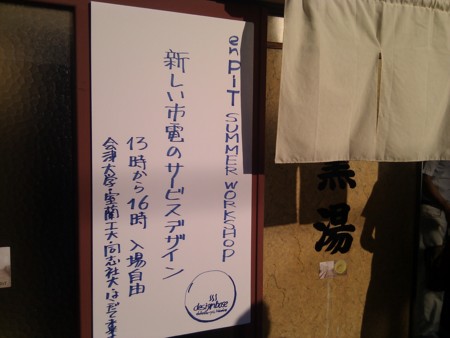 enPiT SUMMER WORKSHOP
新しい市電のサービスデザイン
13時から16時 入場自由
会津大学・室蘭工大・同志社大・はこだて未
designbase
湯